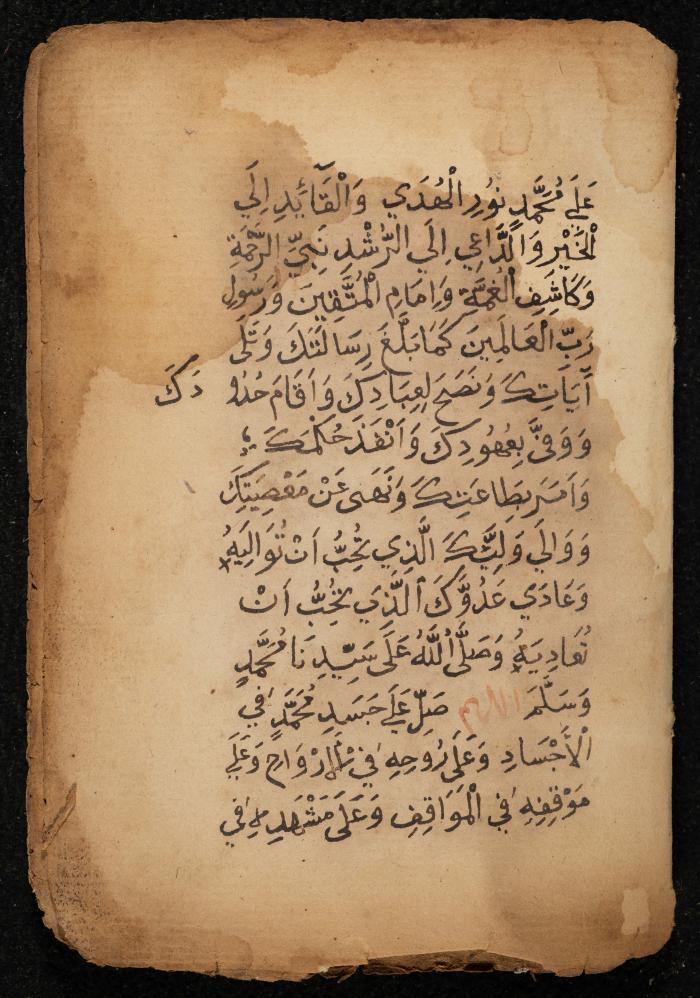 عَلَى مُحَمَّدٍ نُورِ الْهُدَي وَالْقَآئِدِ اِلَي
الْخَيْرِ وَالدَّاعِي اِلَي الرُّشْدِ نَبِيِّ الرَّحْمَةِ
وَكَاشِفِ الْغُمَّةِ وَاِمَامِ الْمُتَّقِينَ وَرَسُولِ
رَبِّ الْعَالَمِينَ كَمَا بَلَّغَ رِسَالَتَكَ وَتَلَى
آيَاتِكَ وَنَصَحَ لِعِبَادِكَ وَاَقَامَ حُدُو دَكَ
وَوَفَّى بِعُهُودِكَ وَاَنْفَذَ حُكْمَكَ
وَاَمَرَ بِطَاعَتِكَ وَنَهَى عَنْ مَعْصِيَتِكَ
وَوَالَي وَلِيَّكَ الَّذِي تُحِبُّ اَنْ تُوَالِيَهُ
وَعَادَي عَدُوَّكَ الَّذِي تُحِبُّ اَنْ
تُعَادِيَهُ وَصَلَّى اللَّهُ عَلَى سَيِّدِنَا مُحَمَّدٍ
وَسَلَّمَ اللهم صَلِّ عَلَى جَسَدِ مُحَمَّدٍ فِي
الْاَجْسَادِ وَعَلَى رُوحِهِ فِي الْاَرْوَاحِ وَعَلَى
مَوْقِفِهِ فِي الْمَوَاقِفِ وَعَلَى مَشْهَدِهِ فِي